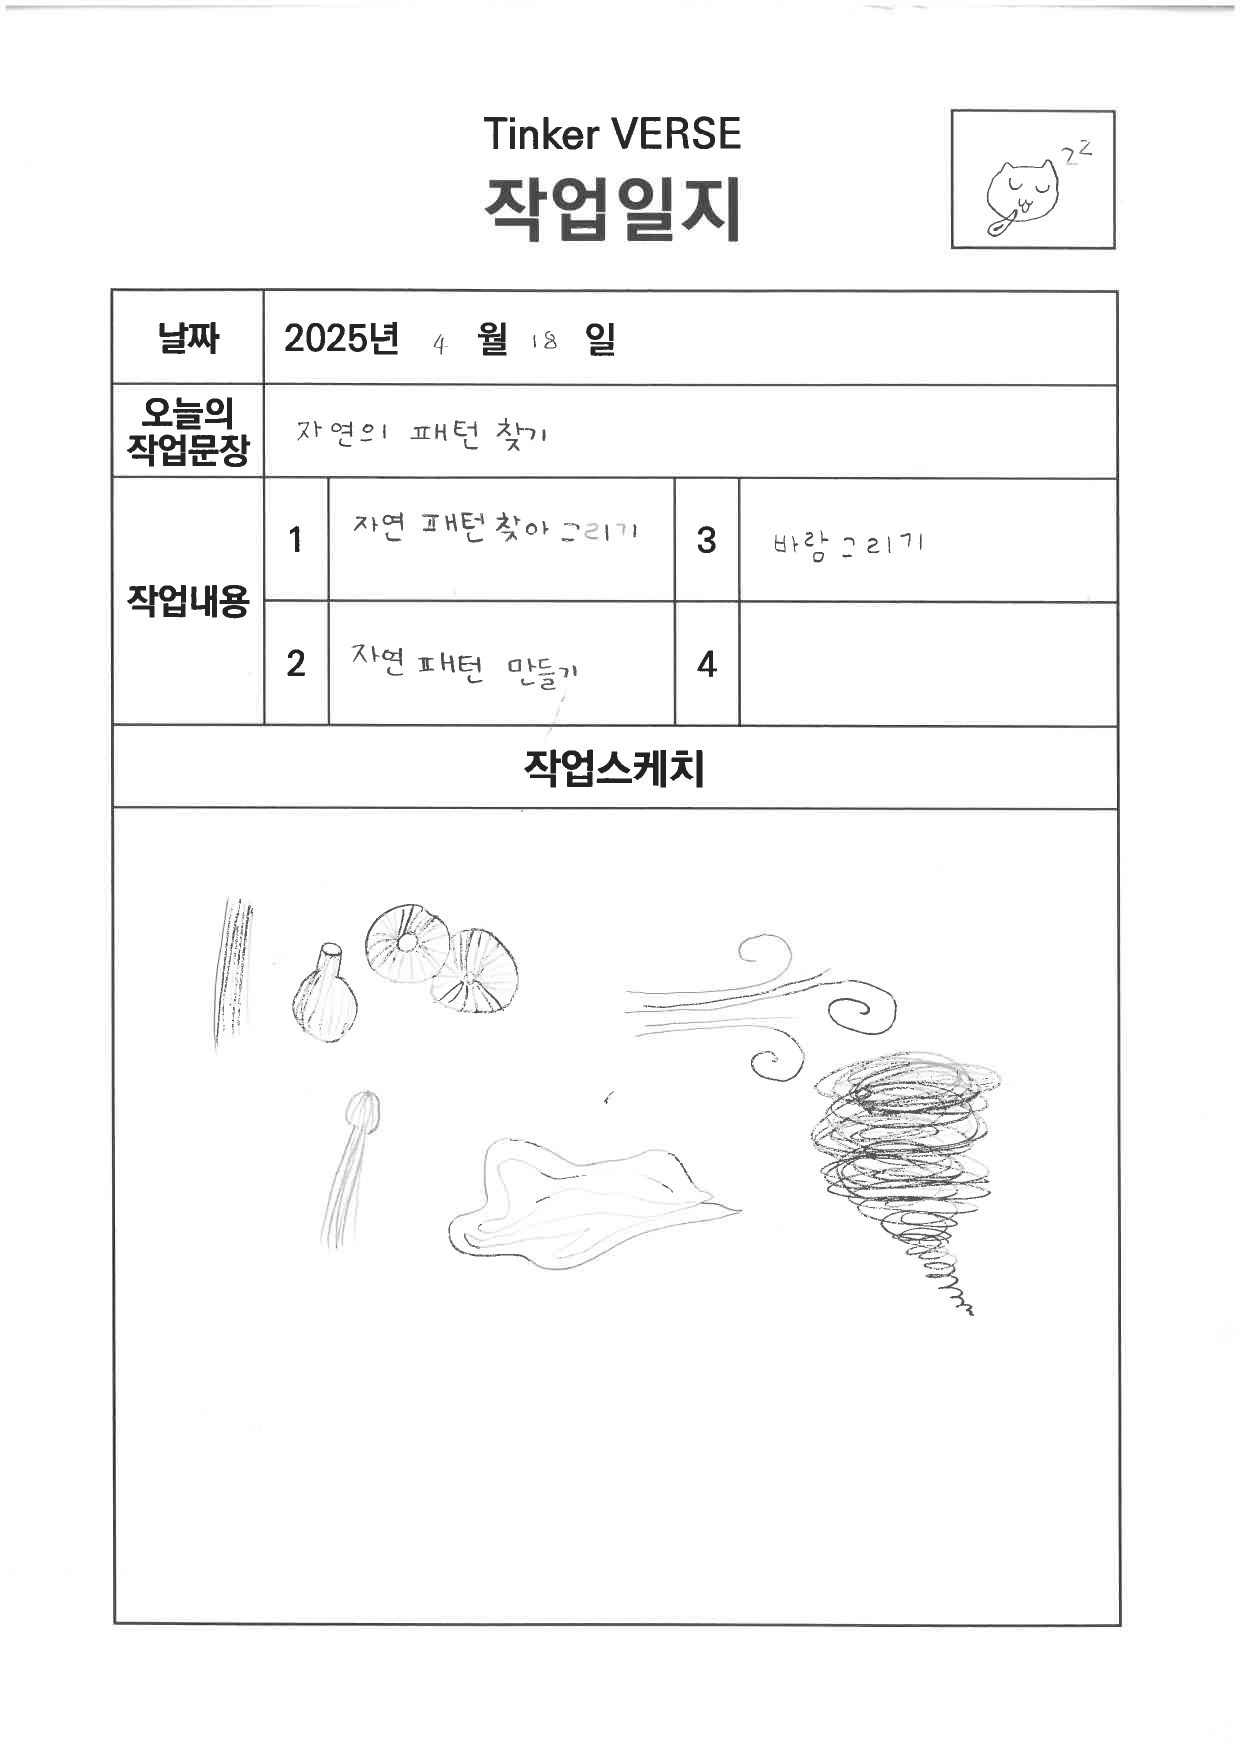 Tinker VERSE
작업일지
zz
날짜
2025년 4 월 18 일
오늘의
작업문장
자연의 패턴 찾기
작업내용
1
자연 패턴 찾아 그리기
3
바람 그리기
2
자연 패턴 만들기
4
작업스케치